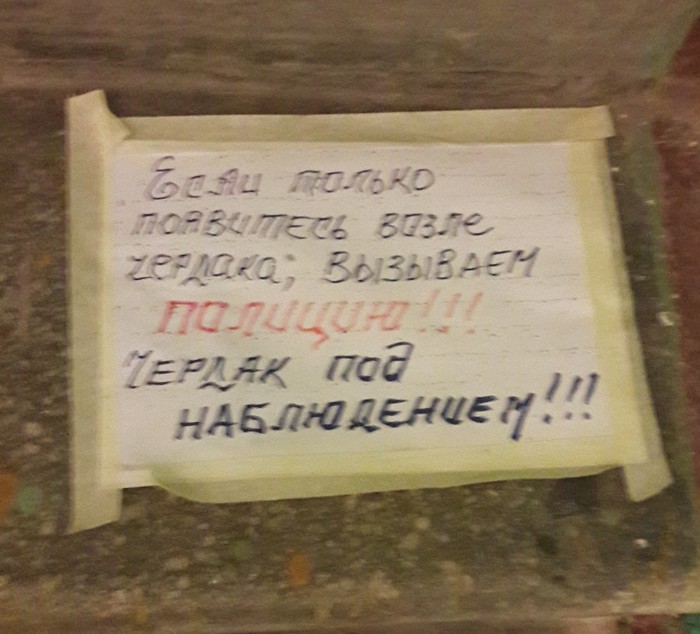 Если только
появитесь возле
чердака; ВЫЗЫВАЕМ
ПОЛИЦИЮ!!!
ЧЕРДАК ПОД
НАБЛЮДЕНИЕМ!!!